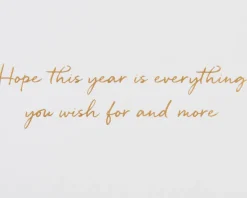 Hope this year is everything
you wish for and more